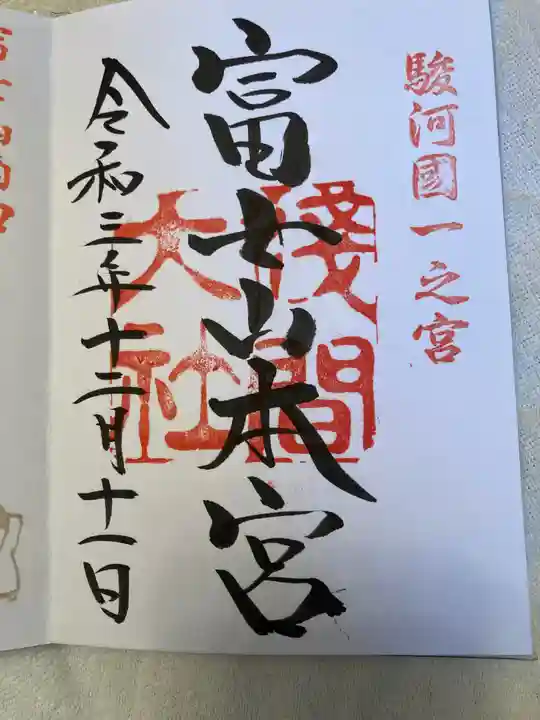 駿河國一之宮
富士山本宮
淺間
大社
令和三年十二月十一日